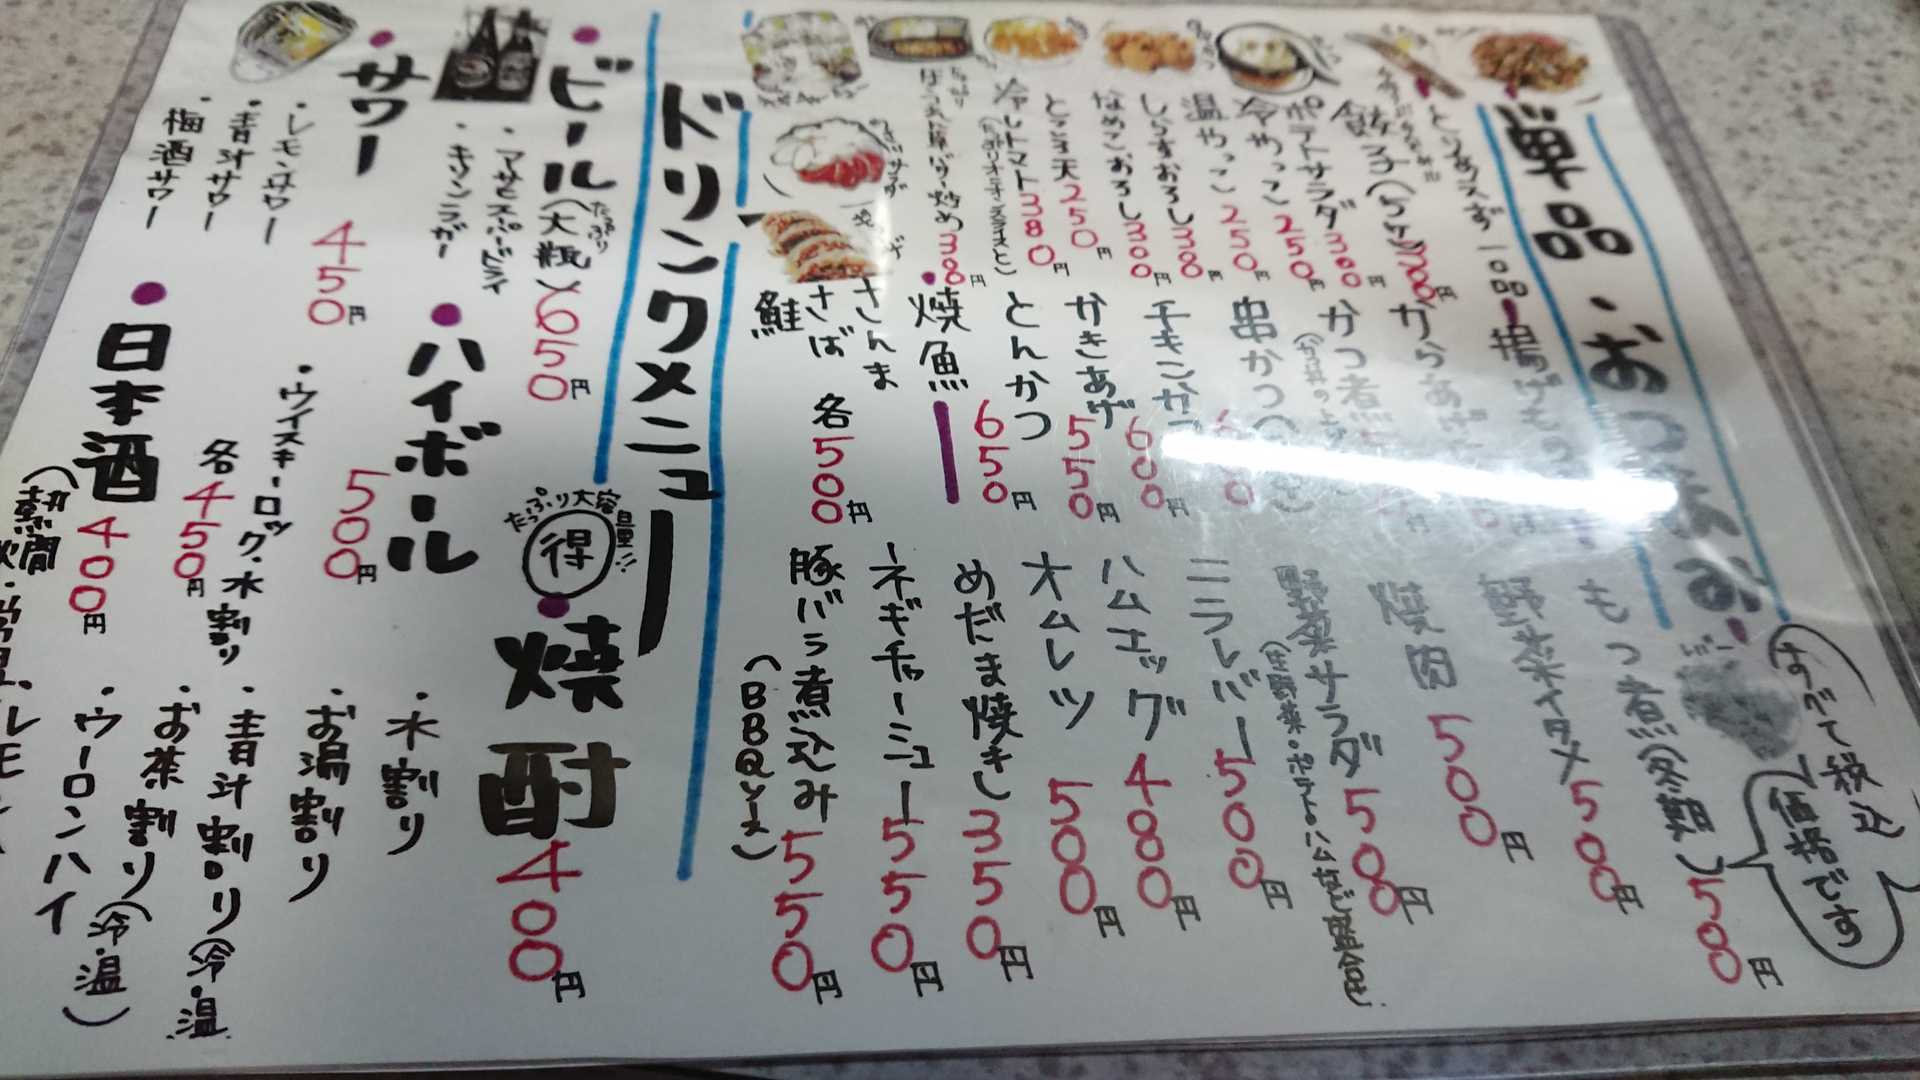 単品・おつまみ
すべて税込
価格です
とりあえず一品
餃子(5ケ)300円
ポテトサラダ300円
冷やっこ250円
温やっこ250円
しらすおろし300円
なめこおろし300円
ところ天250円
冷しトマト380円
炒め300円
揚げもの
からあげ
かつ煮
串かつ
チキンかつ600円
かきあげ550円
とんかつ650円
焼魚
さんま
さば
鮭
各500円
もつ煮(冬期)500円
野菜イタメ500円
焼肉500円
野菜サラダ500円
(生野菜・ポテト・ハムなど盛合せ)
ニラレバー500円
ハムエッグ400円
オムレツ500円
めだま焼き350円
ネギチャーシュー550円
豚バラ煮込み550円
(BBQソース)
ドリンクメニュー
ビール(大瓶)650円
・アサヒスーパードライ
・キリンラガー
サワー450円
・レモンサワー
・青汁サワー
・梅酒サワー
ハイボール500円
・ウイスキーロック・水割り
各450円
日本酒400円
たっぷり大容量!!
得
焼酎400円
・水割り
・お湯割り
・青汁割り(冷・温
・お茶割り(冷・温)
・ウーロンハイ